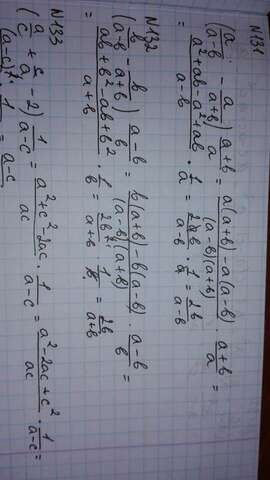 N131
(a/(a-b) - a/(a+b)) (a+b)/a = (a(a+b)-a(a-b))/((a-b)(a+b)) · (a+b)/a =
= (a²+ab-a²+ab)/(a-b) · 1/a = 2ab/(a-b) · 1/a = 2b/(a-b)
N132
(b/(a-b) - b/(a+b)) (a-b)/b = (b(a+b)-b(a-b))/((a-b)(a+b)) · (a-b)/b =
= (ab+b²-ab+b²)/(a+b) · 1/b = 2b²/(a+b) · 1/b = 2b/(a+b)
N133
(a/c + c/a - 2) 1/(a-c) = (a²+c²-2ac)/ac · 1/(a-c) = (a²-2ac+c²)/ac · 1/(a-c) =
(a-c)² · 1 = a-c